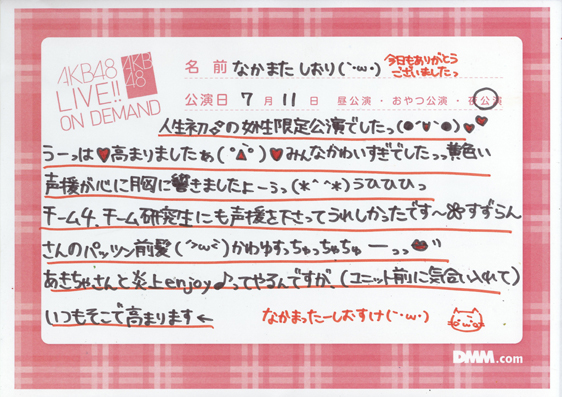 AKB48
LIVE!!
ON DEMAND
AKB
48
名前 なかまたしおり(`･ω･)
今日もありがとう
ございましたっ
公演日 7月11日 昼公演・おやつ公演・夜公演
人生初の女性限定公演でしたっ(●´∀`●)
うーっは♥高まりましたぁ(°Д°)♥みんなかわいすぎでしたっっ黄色い
声援が心に胸に響きましたよーぅっ(*^^*)うひひひっ
チーム4、チーム研究生にも声援を下さってうれしかったです〜すずらん
さんのパッツン前髪(´>ω<`)かわゆすっちゅっちゅちゅーっっ
あきちゃさんと炎上enjoy♪ってやるんですが、(ユニット前に気合い入れて)
いつもそこで高まります←
なかまったーしおすけ(`･ω･)
DMM.com